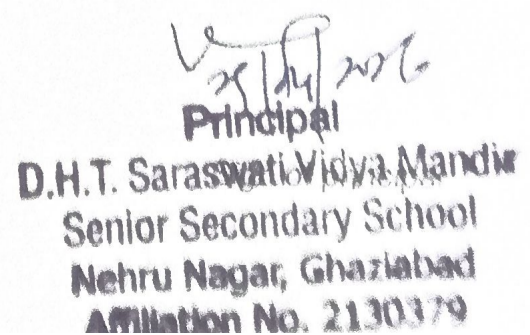 Principal
D.H.T. Saraswati Vidya Mandir
Senior Secondary School
Nehru Nagar, Ghaziabad
Affiliation No. 2130379